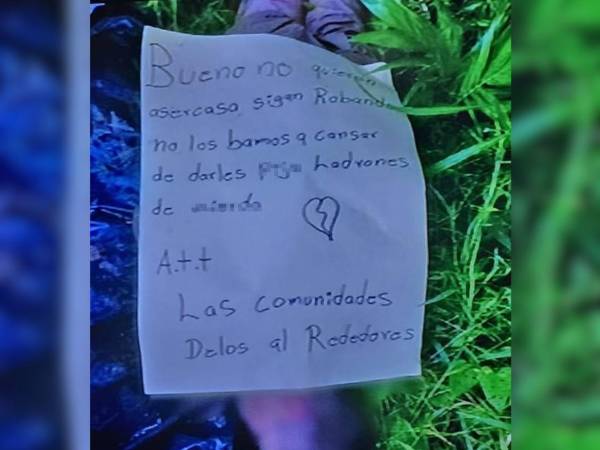 Bueno no quieren
asercaso sigan Robando
no los bamos a cansar
de darles Ladrones
de mierda
A.t.t
Las comunidades
Delos al Rededores